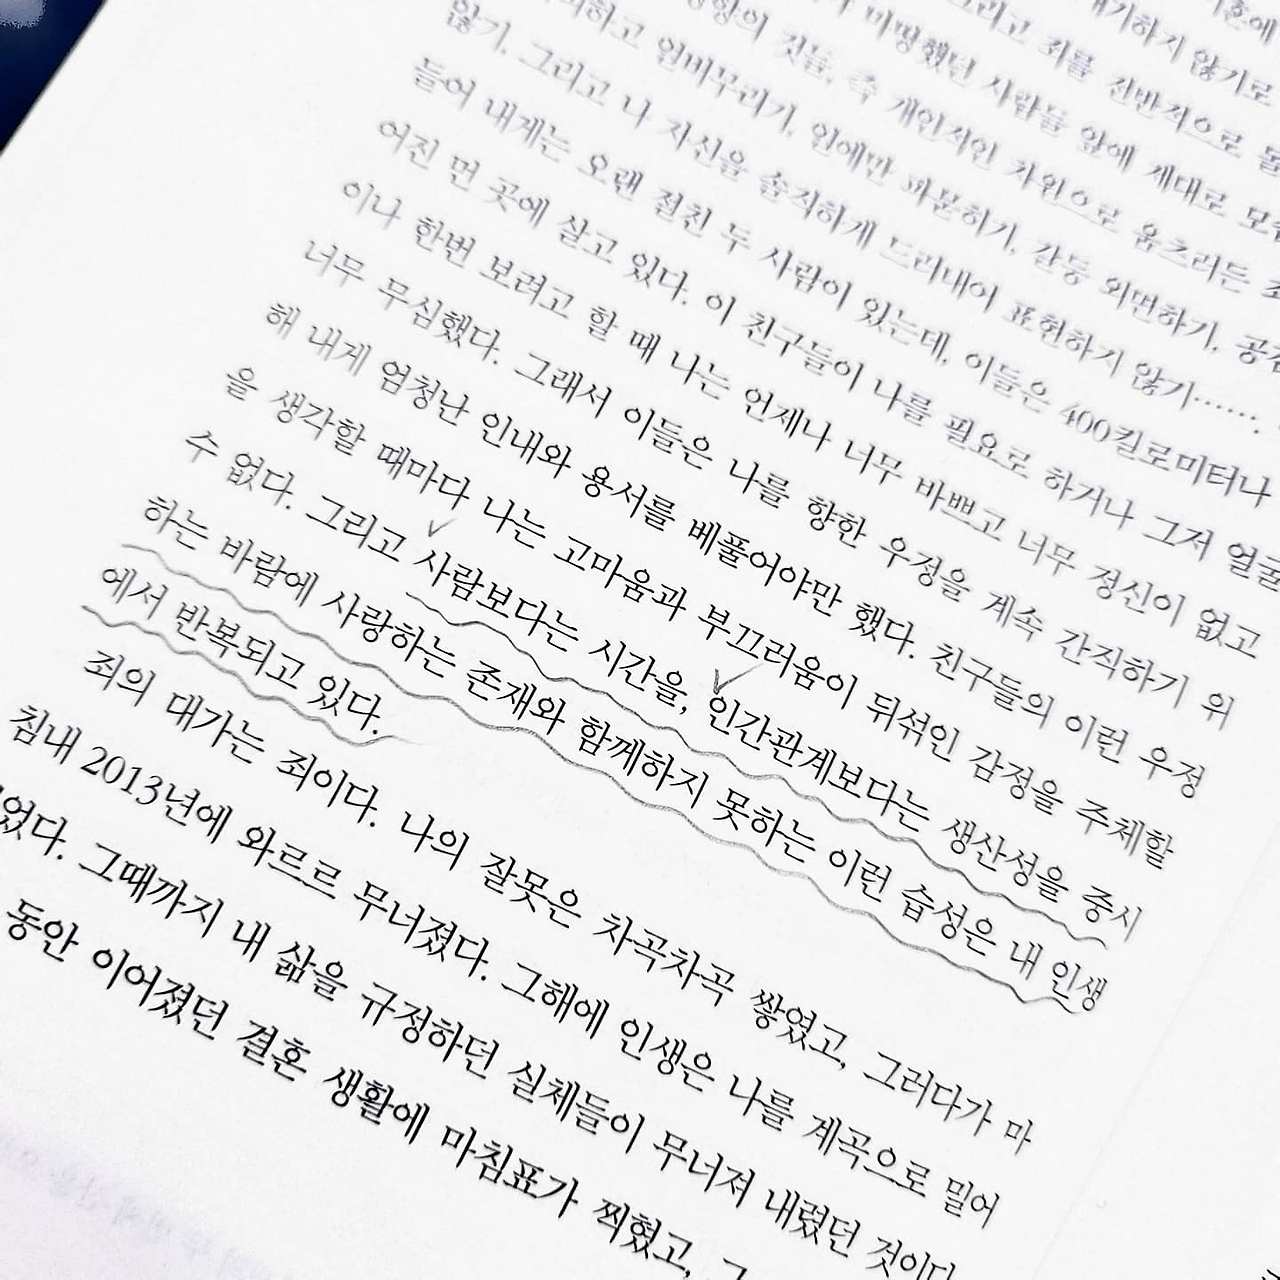 대기하지 않기로
그리고 죄를 전반적으로
미망했던 사람들 앞에 제대로
것들, 즉 개인적인 차원으로 움츠러든
하고 얼버무리기, 일에만 파묻히기, 갈등 외면하기, 공
않기, 그리고 나 자신을 솔직하게 드러내어 표현하지 않기……. 
들어 내게는 오랜 절친 두 사람이 있는데, 이들은 400킬로미터나
어진 먼 곳에 살고 있다. 이 친구들이 나를 필요로 하거나 그저 얼굴
이나 한번 보려고 할 때 나는 언제나 너무 바쁘고 너무 정신이 없고
너무 무심했다. 그래서 이들은 나를 향한 우정을 계속 간직하기 위
해 내게 엄청난 인내와 용서를 베풀어야만 했다. 친구들의 이런 우정
을 생각할 때마다 나는 고마움과 부끄러움이 뒤섞인 감정을 주체할
수 없다. 그리고 사람보다는 시간을, 인간관계보다는 생산성을 중시
하는 바람에 사랑하는 존재와 함께하지 못하는 이런 습성은 내 인생
에서 반복되고 있다.
죄의 대가는 죄이다. 나의 잘못은 차곡차곡 쌓였고, 그러다가 마
침내 2013년에 와르르 무너졌다. 그해에 인생은 나를 계곡으로 밀어
었다. 그때까지 내 삶을 규정하던 실체들이 무너져 내렸던 것이다
동안 이어졌던 결혼 생활에 마침표가 찍혔고, 그